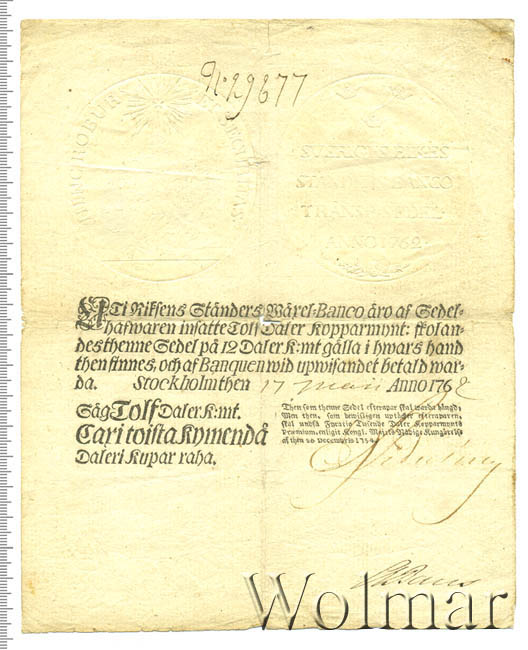 No. 29677
HINC ROBUR
SECURITAS
SVERIGES RIKES
STÄNDERS BANCO
TRANSP: SEDEL
ANNO 1762
ATi Riksens Ständers Wäxel-Banco äro af Sedel-
hafwaren insatte Tolf Daler Kopparmynt: skolan-
des thenne Sedel på 12 Daler K:mt gälla i hwars hand
then finnes, och af Banquen wid upwisandet betald war-
da. Stockholm then 17 Maii ANNO 1762
Säg Tolf Daler K:mt.
Caxi toista kymendä
Daleri Kupar raha.
Then som thenne Sedel efterapar skal warda hängd;
Men then, som bewisligen uptäcker efteraparen,
skal undfå Fyratio Tusende Daler Kopparmynts
Præmium, enligit Kongl. Maj:ts Nådige Kungörelse
af then
Wolmar